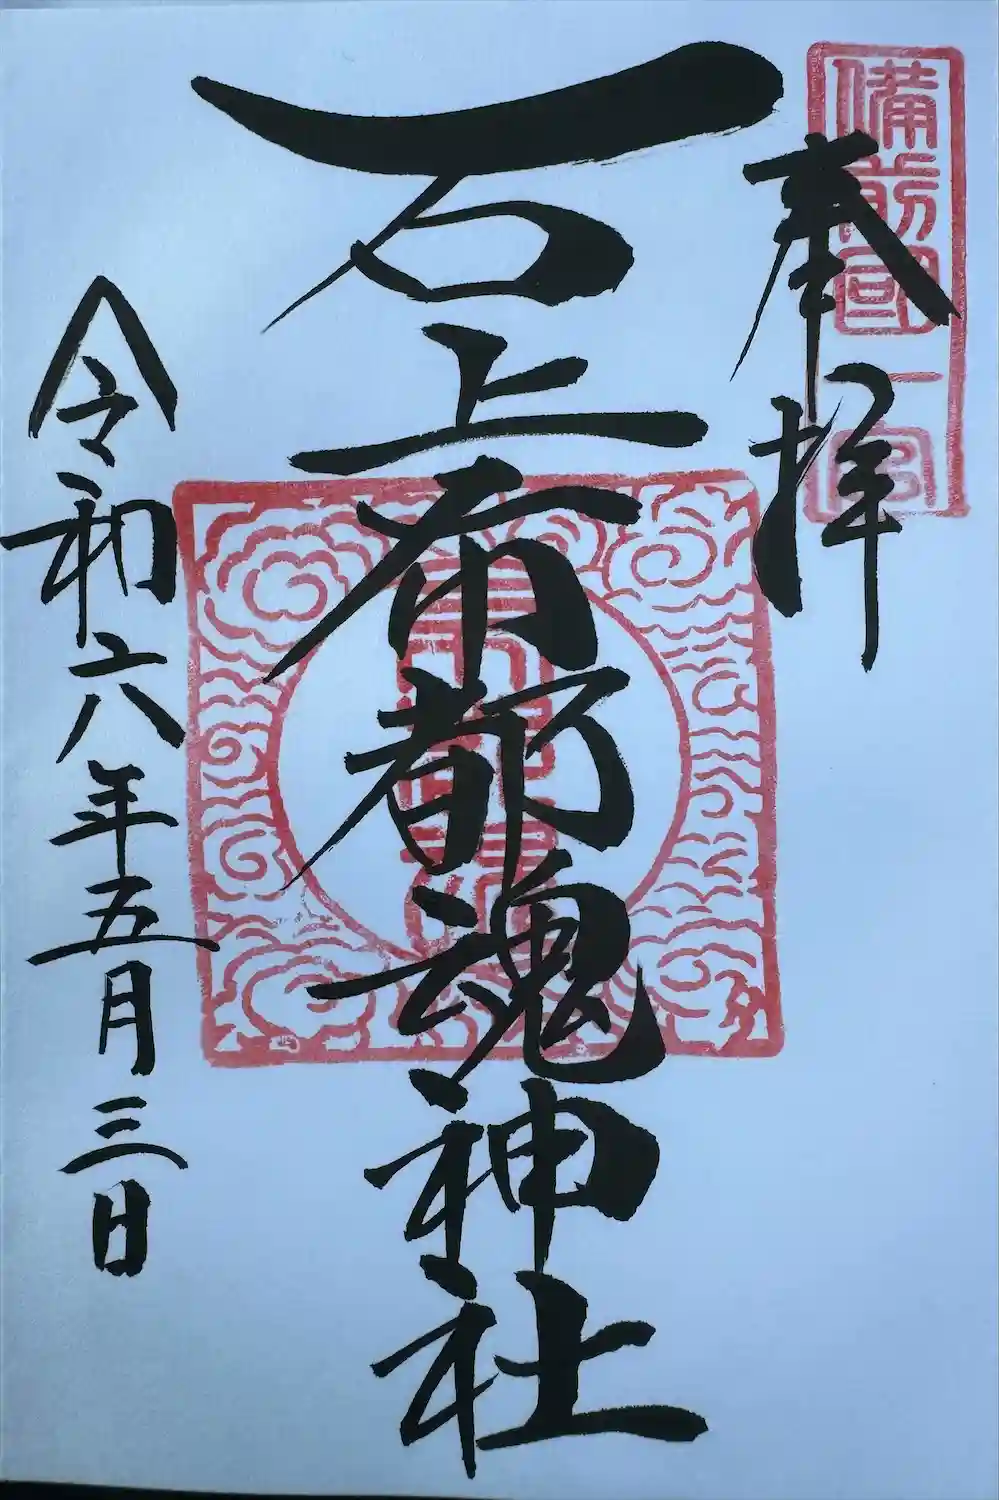 備前國一宮
奉拝
石上布都魂神社
令和六年五月三日